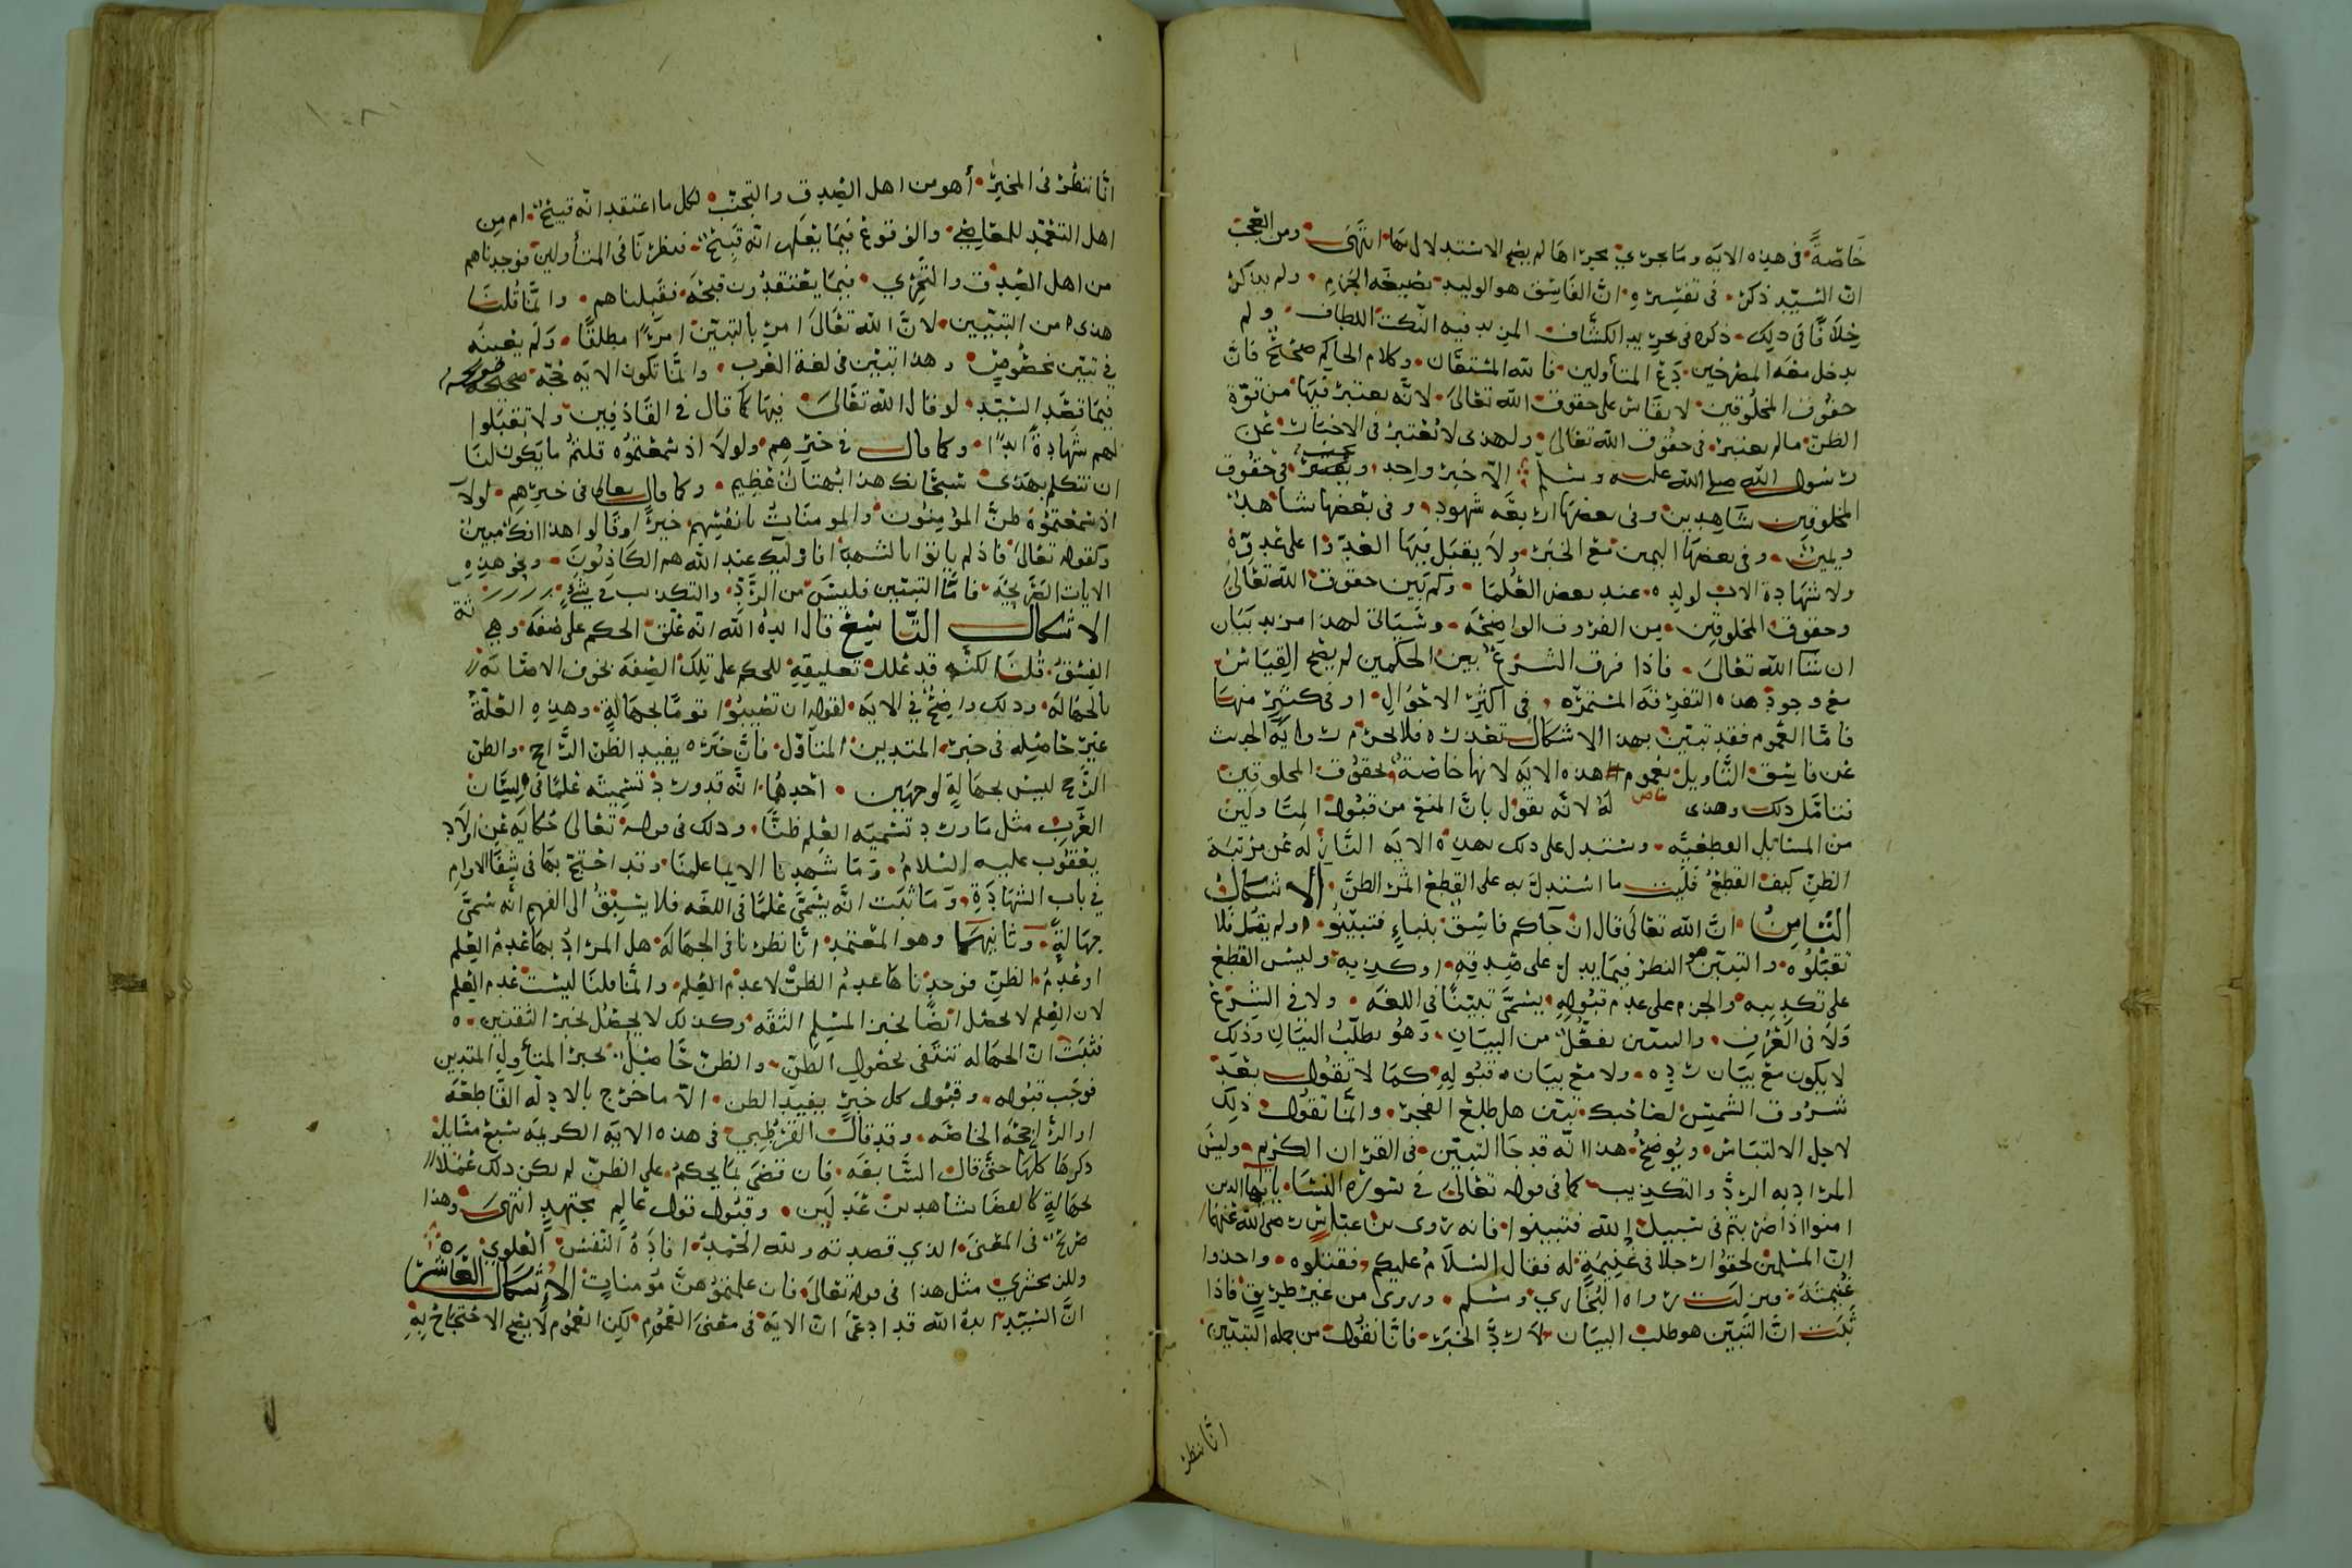 خاصة في هذه الاية وما جرى مجراها لم يصح الاستدلال بها انتهى ومن العجب
ان السيد ذكر في تفسيره ان الفاسق هو الوليد بصيغة الجزم ولم يذكر
خلافا في ذلك ذكره في تجريد الكشاف المزيد فيه النكت اللطاف ولم
يدخل معه المصرحين دع المتأولين فالله المستعان وكلام الحاكم صحيح فان
حقوق المخلوقين لا يقاس على حقوق الله تعالى لانه يعتبر فيها من قوة
الظن مالم يعتبر في حقوق الله تعالى ولهذى لا يعتبر في الاخبار عن
رسول الله صلى الله عليه وسلم الا خبر واحد ويعتبر في حقوق
المخلوقين شاهدين وفي بعضها اربعة شهود وفي بعضها شاهد
ويمين وفي بعضها اليمين مع الخبر ولا يقبل فيها العدو اذا على عدوه
ولا شهادة الاب لولده عند بعض العلما وكم بين حقوق الله تعالى
وحقوق المخلوقين من الفروق الواضحة وسياتي لهذا مزيد بيان
ان شا الله تعالى فاذا فرق الشرع بين الحكمين لم يصح القياس
مع وجود هذه التفرقة المستمرة في اكثر الاحوال او في كثير منها
فاما العموم فقد تبين بهذا الاشكال تعذره فلا تحرم رواية الحديث
عن فاسق التاويل بعموم هذه الاية لانها خاصة بحقوق المخلوقين
فتامل ذلك وهذى خاص له لانه يقول بان المنع من قبول المتاولين
من المسائل القطعية وستدل على ذلك بهذه الاية النازلة عن مرتبة
الظن كيف القطع فليت ما استدل به على القطع اثمر الظن الاشكال
الثامن ان الله تعالى قال ان جآكم فاسق بنباء فتبينو ولم يقل فلا
تقبلوه والتبين هو النظر فيما يدل على صدقه او كذبه وليس القطع
على تكذيبه والجزم على عدم قبوله يسمى تبينا في اللغه ولا في الشرع
ولا في العرف والتبين تفعل من البيان وهو طلب البيان وذلك
لا يكون مع بيان رده ولا مع بيان قبوله كما لا تقول بعد
شروق الشمس لصاحبك تبين هل طلع الفجر وانما تقول ذلك
لاجل الالتباس ويوضح هذا انه قد جا التبين في القران الكريم وليس
المراد به الرد والتكذيب كما في قوله تعالى في سورة النسا يايها الذين
امنوا اذا ضربتم في سبيل الله فتبينوا فانه روى بن عباس رضي الله عنهما
ان المسلمين لحقوا رجلا في غنيمة له فقال السلام عليكم فقتلوه واخذوا
غنيمته فنزلت رواه البخاري ومسلم وروى من غير طريق فاذا
ثبت ان التبين هو طلب البيان لا رد الخبر فانا نقول من جملة التبين
انا ننظر
انا ننظر في المخبر أهو من اهل الصدق والتجنب لكل ما اعتقد انه قبيح ام من
اهل التعمد للمعاصي والوقوع فيما يعلم انه قبيح فنظرنا في المتأولين فوجدناهم
من اهل الصدق والتحري فيما يعتقدون قبحه فقبلناهم وانما قلنا
هذى من التبيين لان الله تعالى امر بالتبين امرا مطلقا ولم يعينه
في تبين مخصوص وهذا تبين في لغة العرب وانما تكون الاية حجة صحيحة
فيما قصد السيد لو قال الله تعالى فيها كما قال في القاذفين ولا تقبلوا
لهم شهادة ابدا وكما قال في خبرهم ولولا اذ سمعتموه قلتم ما يكون لنا
ان نتكلم بهذى سبحانك هذا بهتان عظيم وكما قال تعالى في خبرهم لولا
اذ سمعتموه ظن المؤمنون والمومنات بانفسهم خيرا وقالوا هذا افك مبين
وكقوله تعالى فاذ لم ياتوا بالشهدا فاولئك عند الله هم الكاذبون ونحو هذه
الايات الصريحة فاما التبين فليس من الرد والتكذيب في شيء
الاشكال التاسع قال ايده الله انه علق الحكم على صفة وهي
الفسق قلنا لكنه قد علل تعليقه للحكم على تلك الصفة بخوف الاصابة
بالجهالة وذلك واضح في الاية لقوله ان تصيبوا قوما بجهالة وهذه العلة
غير حاصله في خبر المتدين المتاول فان خبره يفيد الظن الراجح والظن
الراجح ليس بجهالة لوجهين احدهما انه قد ورد تسميته علما في لسان
العرب مثل ما ورد تسمية العلم ظنا وذلك في قوله تعالى حكاية عن اولاد
يعقوب عليه السلام وما شهدنا الا بما علمنا وقد احتج بها في شفا الاوام
في باب الشهادة وما ثبت انه يسمى علما في اللغه فلا يسبق الى الفهم انه سمى
جهالة وثانيهما وهو المعتمد انا نظرنا في الجهالة هل المراد بها عدم العلم
او عدم الظن فوجدناها عدم الظن لا عدم العلم وانما قلنا ليست عدم العلم
لان العلم لا يحصل ايضا بخبر المسلم الثقه وكذلك لا يحصل بخبر الثقتين
فثبت ان الجهاله تنتفى بحصول الظن والظن حاصل بخبر المتأول المتدين
فوجب قبوله وقبول كل خبر يفيد الظن الا ما خرج بالادلة القاطعة
او الراجحة الخاصة وقد قال القرطبي في هذه الاية الكريمه سبع مسايل
ذكرها كلها حتى قال السابعه فان قضى بما يحكم على الظن لم يكن ذلك عملا
بجهالة كالقضا بشاهدين عدلين وقبول قول عالم مجتهد انتهى وهذا
صريح في المعنى الذي قصدته ولله الحمد افاده النفس العلوي
وللزمخشري مثل هذا في قوله تعالى فان علمتموهن مؤمنات الاشكال العاشر
ان السيد ايده الله قد ادعى ان الاية في معنى العموم لكن العموم لا يصح الاحتجاج به